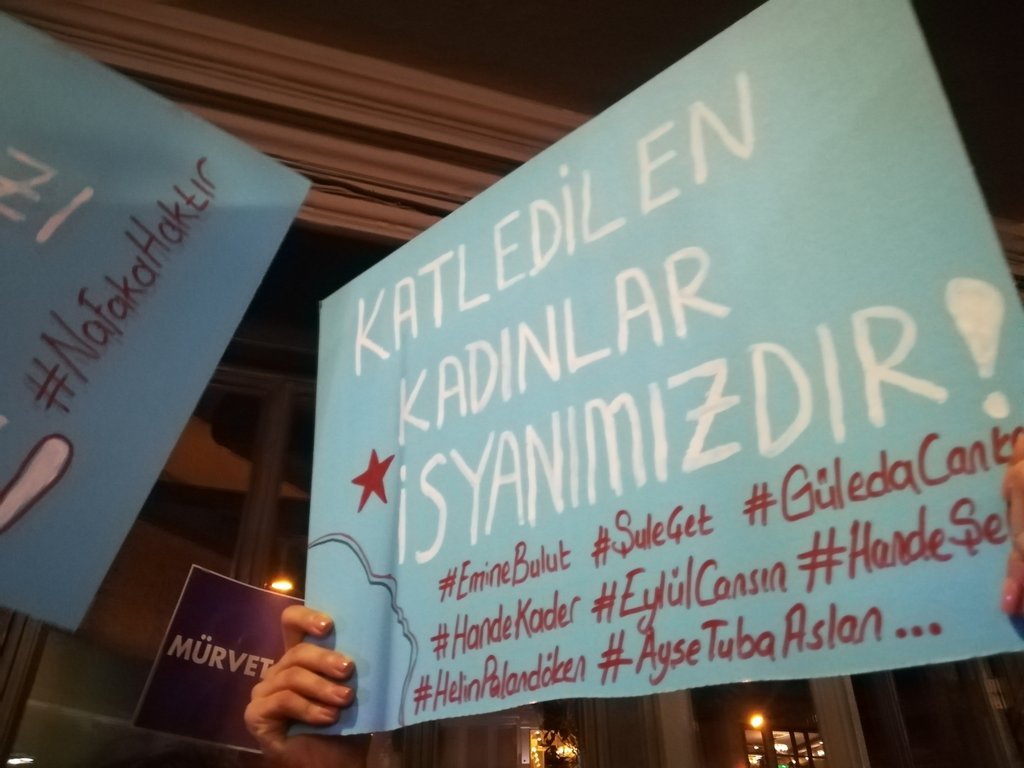 #NafakaHaktır
KATLEDİLEN
KADINLAR
İSYANIMIZDIR!
#EmineBulut #ŞuleÇet #GüledaCank
#HandeKader #EylülCansın #HandeŞe
#HelinPalandöken #AyşeTubaAslan...
MÜRVET